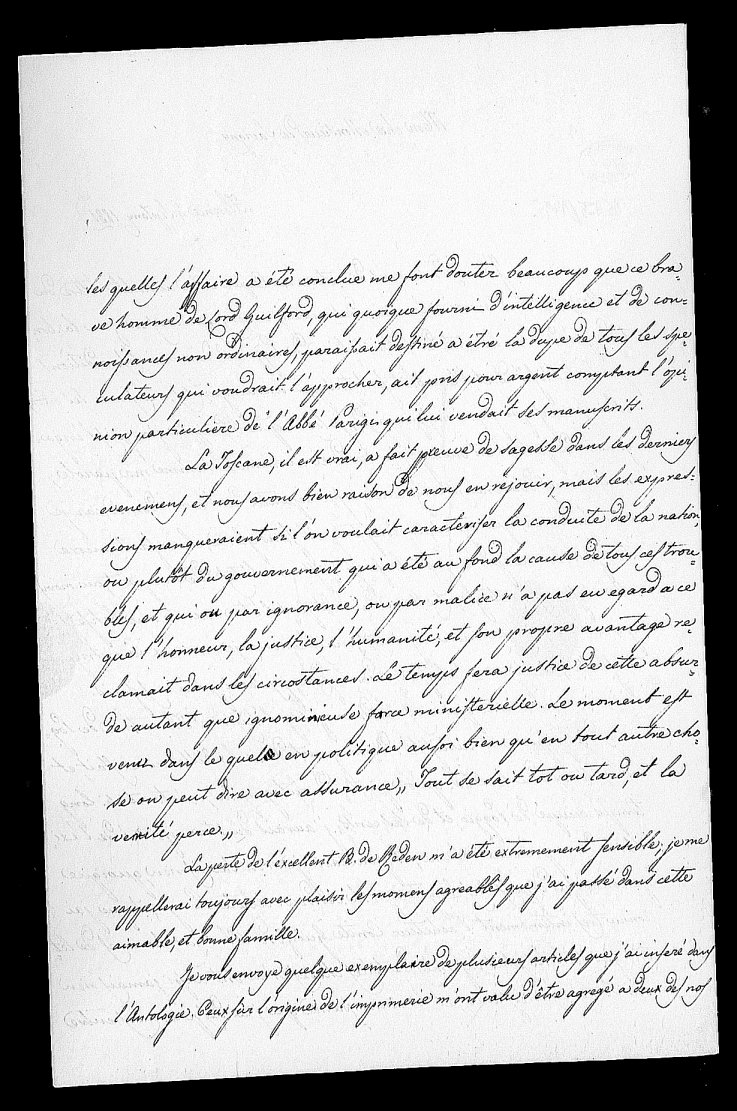 les quelles l'affaire a été conclue me font douter beaucoup que ce bra-
ve homme de Lord Guilford, qui quoique fourni d'intelligence et de con-
noissances non ordinaires, paraissait destiné a étré la dupe de tous les spe-
culateurs qui voudrait l'approcher, ait pris pour argent comptant l'opi-
nion particuliere de l'Abbé Parigi qui lui vendait ses manuscrits.
La Toscane, il est vrai, a fait preuve de sagesse dans les derniers
evenemens, et nous avons bien raison de nous en rejouir, mais les expres-
sions manqueraient si l'on voulait caracteriser la conduite de la nation,
ou plutôt du gouvernement qui a été au fond la cause de tous ces trou-
bles, et qui ou par ignorance, ou par malice n'a pas eu egard a ce
que l'honneur, la justice, l'humanité, et son propre avantage re-
clamait dans les circostances. Le temps fera justice de cette absur-
de autant que ignominieuse farce ministerielle. Le moment est
venu dans le quel en politique aussi bien qu'en tout autre cho-
se on peut dire avec assurance „ Tout se sait tot ou tard, et la
verité perce. „
La perte de l'éxcellent B. de Reden m'a été extremement sensible; je me
rappellerai toujours avec plaisir les momens agreables que j'ai passé dans cette
aimable, et bonne famille.
Je vous envoye quelque exemplaire de plusieurs articles que j'ai inseré dans
l'Antologie. Ceux sur l'origine de l'imprimerie m'ont valu d'être agregé a deux des nos